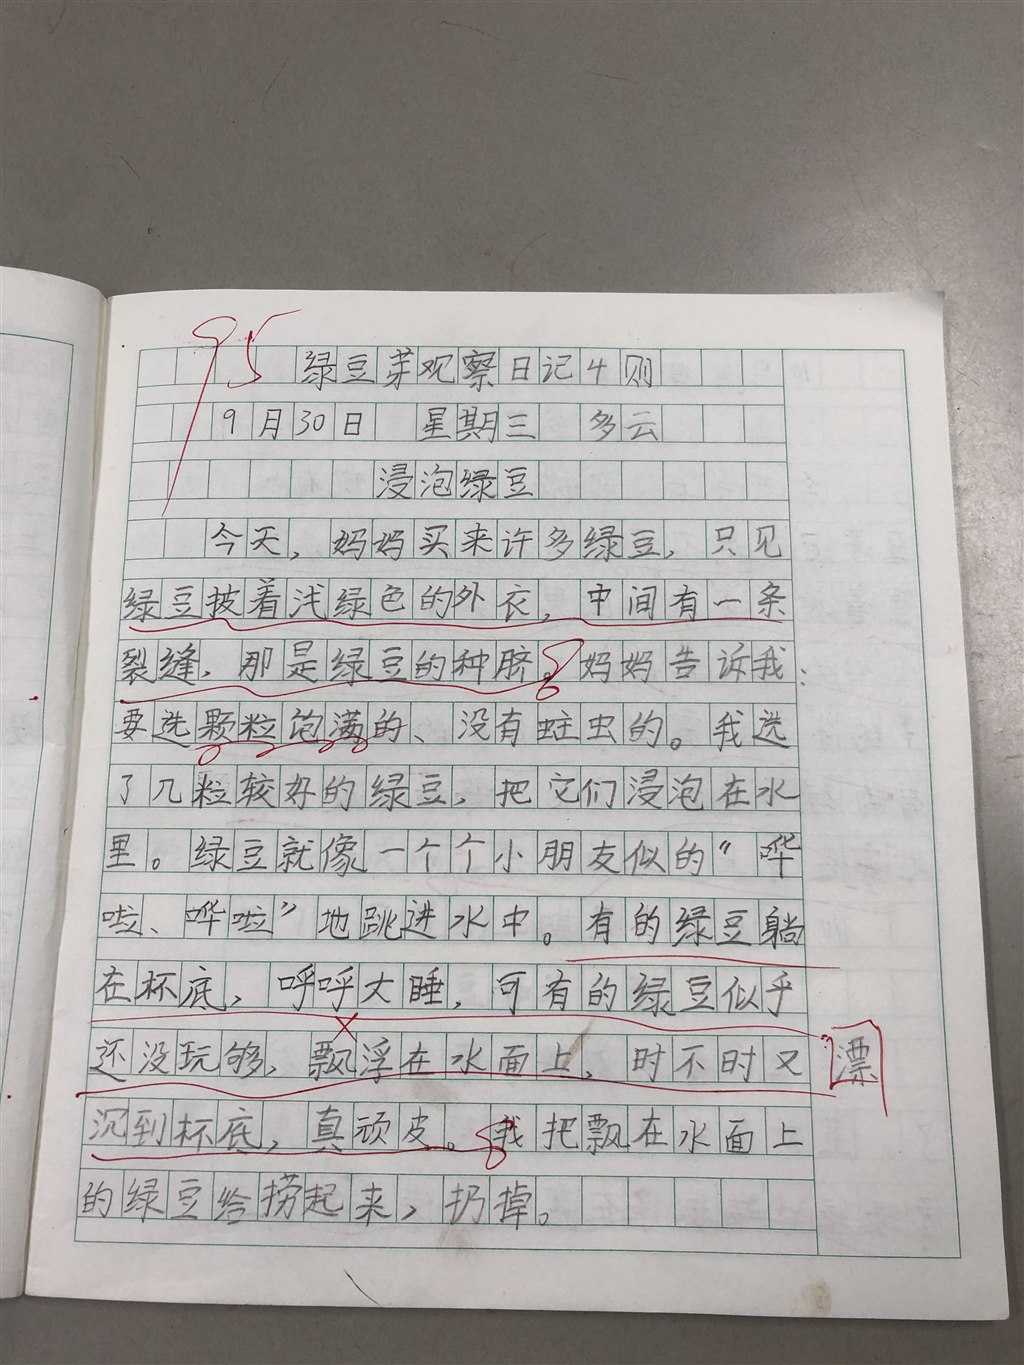 95
绿豆芽观察日记4则
9月30日 星期三 多云
浸泡绿豆
今天，妈妈买来许多绿豆，只见
绿豆披着浅绿色的外衣，中间有一条
裂缝，那是绿豆的种脐。妈妈告诉我：
要选颗粒饱满的、没有蛀虫的。我选
了几粒较好的绿豆，把它们浸泡在水
里。绿豆就像一个个小朋友似的“哗
啦、哗啦”地跳进水中。有的绿豆躺
在杯底，呼呼大睡，可有的绿豆似乎
还没玩够，飘浮在水面上，时不时又
漂
沉到杯底，真顽皮。我把飘在水面上
的绿豆给捞起来，扔掉。